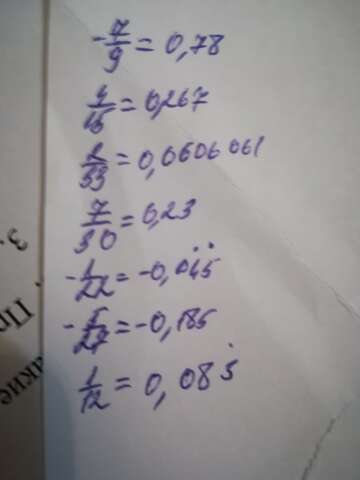 -7/9 = 0,78
4/15 = 0,267
2/33 = 0,0606061
7/30 = 0,23
-1/22 = -0,04̇5̇
-5/27 = -0,185
1/12 = 0,083̇
3.
Пр
акие